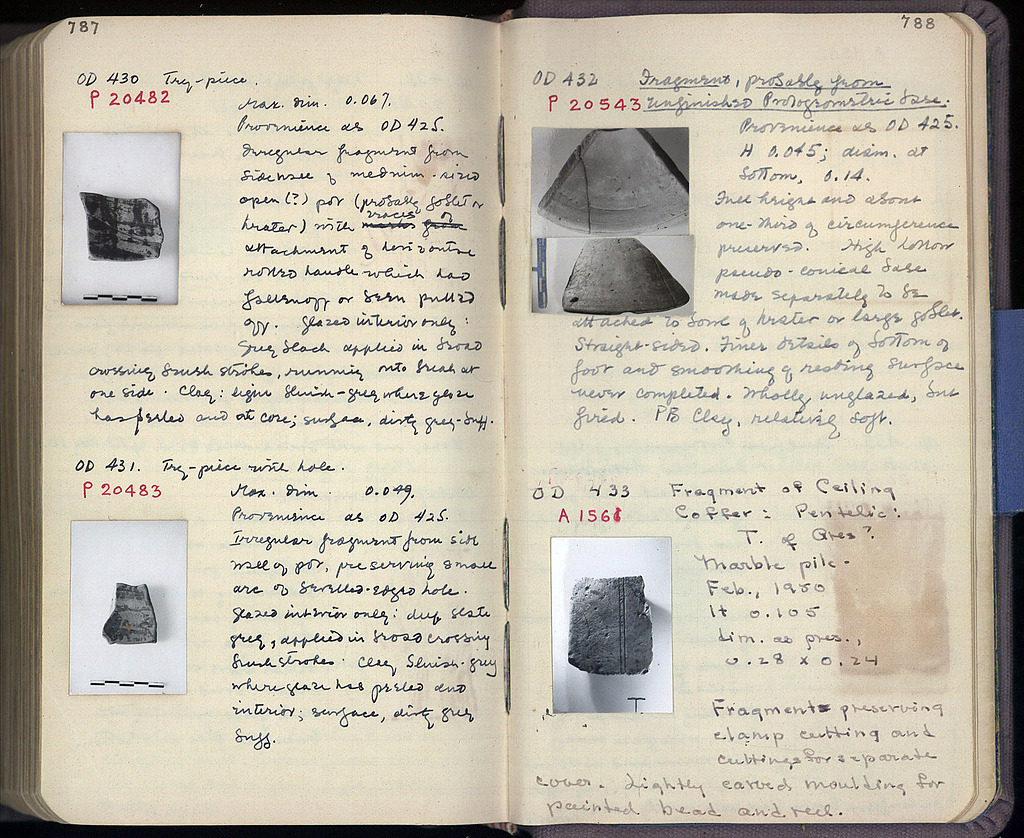 787
OD 430 Try-piece.
P 20482
Max. dim. 0.067.
Provenience as OD 425.
Irregular fragment from
side wall of medium-sized
open (?) pot (probably goblet or
krater) with traces of
attachment of horizontal
rolled handle which had
fallen off or been pulled
off. Glazed interior only:
grey black applied in broad
crossing brush strokes, running onto break at
one side. Clay: light bluish-grey where glaze
has peeled and at core; surface, dirty grey-buff.
OD 431. Try-piece with hole.
P 20483
Max. dim. 0.049.
Provenience as OD 425.
Irregular fragment from side
wall of pot, preserving small
arc of bevelled-edged hole.
Glazed interior only: deep slate
grey, applied in broad crossing
brush strokes. Clay bluish-grey
where glaze has peeled and
interior; surface, dirty grey
buff.
788
OD 432 Fragment, probably from
P 20543 unfinished Protogeometric base.
Provenience as OD 425.
H 0.045; diam. at
bottom, 0.14.
Full height and about
one-third of circumference
preserved. High hollow
pseudo-conical base
made separately to be
attached to bowl of krater or large goblet.
Straight-sided. Finer details of bottom of
foot and smoothing of resting surface
never completed. Wholly unglazed, but
fired. PB Clay, relatively soft.
OD 433 Fragment of Ceiling
A 1561 Coffer: Pentelic:
T. of Ares?
Marble pile.
Feb., 1950
H 0.105
dim. as pres.,
0.28 x 0.24
T
Fragment preserving
clamp cutting and
cuttings for separate
cover. Lightly carved moulding for
painted bead and reel.